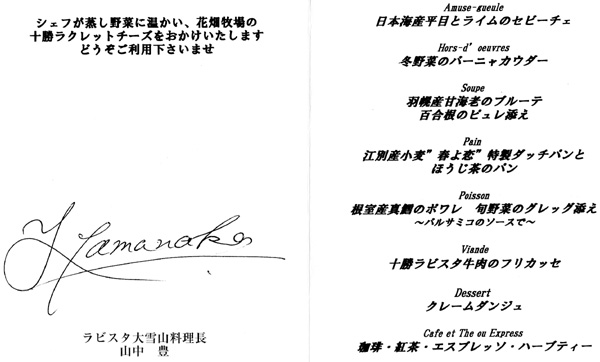 シェフが蒸し野菜に温かい、花畑牧場の
十勝ラクレットチーズをおかけいたします
どうぞご利用下さいませ
Y Yamanaka
ラビスタ大雪山料理長
山中 豊
Amuse-gueule
日本海産平目とライムのセビーチェ
Hors-d' oeuvres
冬野菜のバーニャカウダー
Soupe
羽幌産甘海老のブルーテ
百合根のピュレ添え
Pain
江別産小麦”春よ恋”特製ダッチパンと
ほうじ茶のパン
Poisson
根室産真鱈のポワレ 旬野菜のグレッグ添え
～バルサミコのソースで～
Viande
十勝ラビスタ牛肉のフリカッセ
Dessert
クレームダンジュ
Cafe et The ou Express
珈琲・紅茶・エスプレッソ・ハーブティー